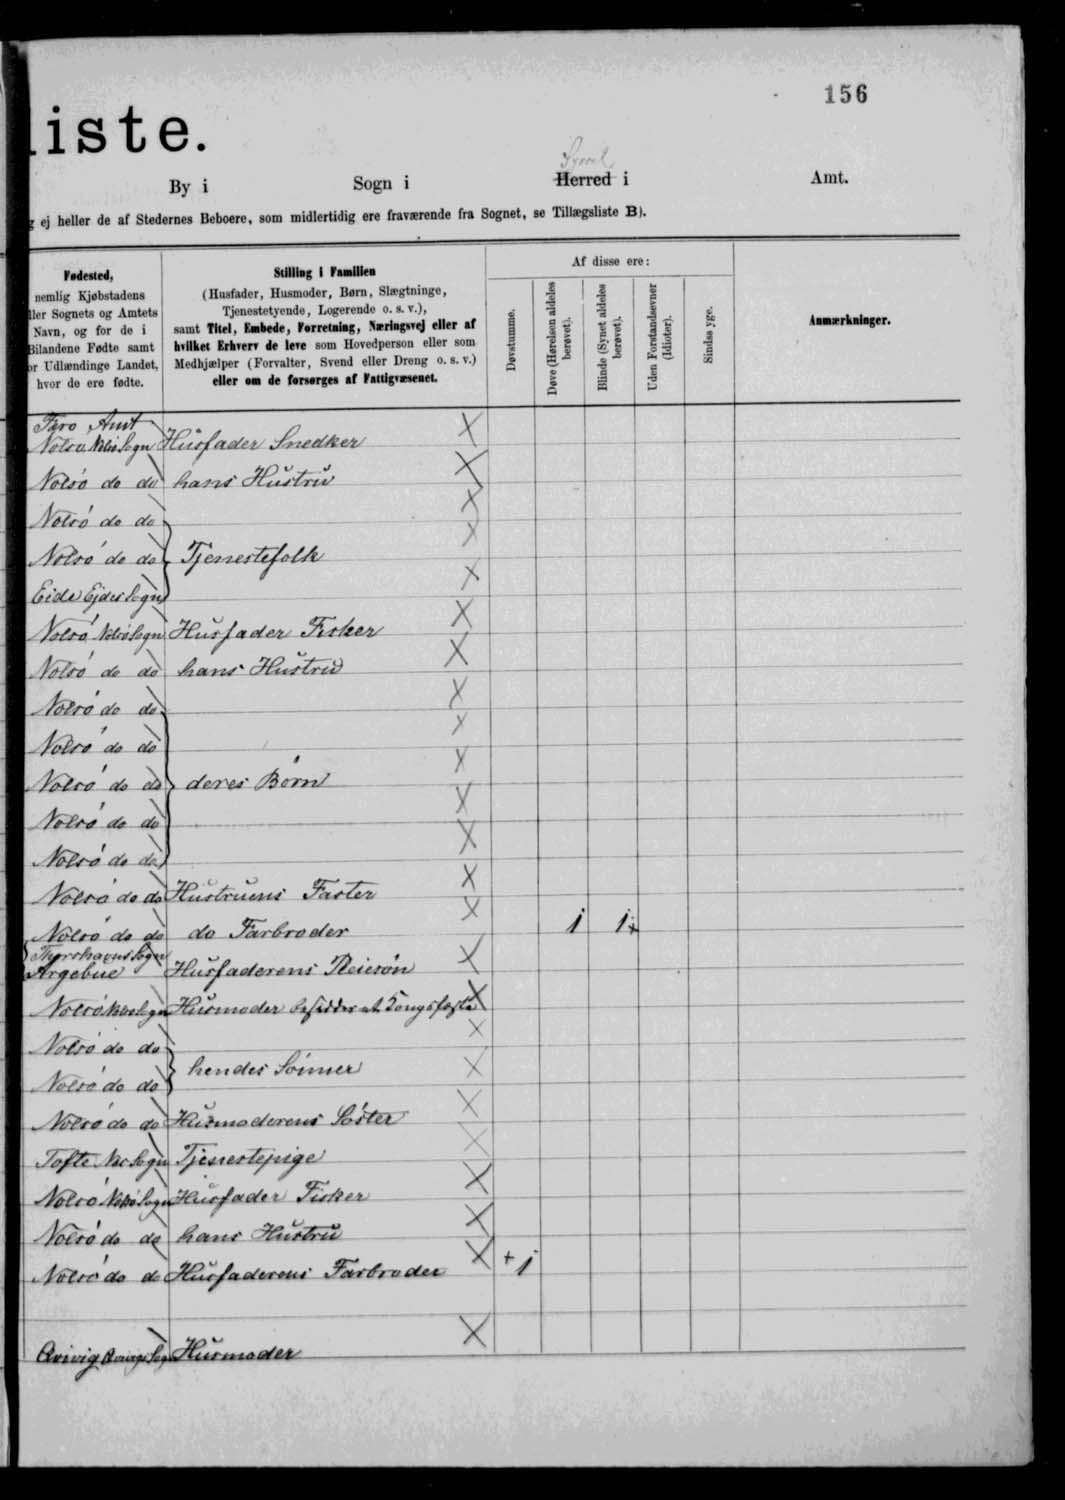 156
liste.
Syssel
By i Sogn i Herred i Amt.
g ej heller de af Stedernes Beboere, som midlertidig ere fraværende fra Sognet, se Tillægsliste B).
Fødested,
nemlig Kjøbstadens
ller Sognets og Amtets
Navn, og for de i
Bilandene Fødte samt
or Udlændinge Landet,
hvor de ere fødte.
Stilling i Familien
(Husfader, Husmoder, Børn, Slægtninge,
Tjenestetyende, Logerende o. s. v.),
samt Titel, Embede, Forretning, Næringsvej eller af
hvilket Erhverv de leve som Hovedperson eller som
Medhjælper (Forvalter, Svend eller Dreng o. s. v.)
eller om de forsørges af Fattigvæsenet.
Af disse ere:
Døvstumme.
Døve (Hørelsen aldeles
berøvet).
Blinde (Synet aldeles
berøvet).
Uden Forstandsevner
(Idioter).
Sindssyge.
Anmærkninger.
Færo Amt
Nolsö Nolsö Sogn Husfader Snedker
Nolsö do do hans Hustru
Nolsö do do
Nolsö do do Tjenestefolk
Eide Ejdes Sogn
Nolsö Nolsö Sogn Husfader Fisker
Nolsö do do hans Hustru
Nolsö do do
Nolsö do do
Nolsö do do deres Børn
Nolsö do do
Nolsö do do
Nolsö do do Hustruens Faster
Nolsö do do do Farbroder 1 1
Thorshavns Sogn
Argeboe Husfaderens Pleiesøn
Nolsö Nolsö Sogn Husmoder besidder et Kongsfæste
Nolsö do do
Nolsö do do hendes Sönner
Nolsö do do Husmoderens Söster
Tofte Nes Sogn Tjenestepige
Nolsö Nolsö Sogn Husfader Fisker
Nolsö do do hans Hustru
Nolsö do do Husfaderens Farbroder + 1
Qvivig Qvivigs Sogn Husmoder